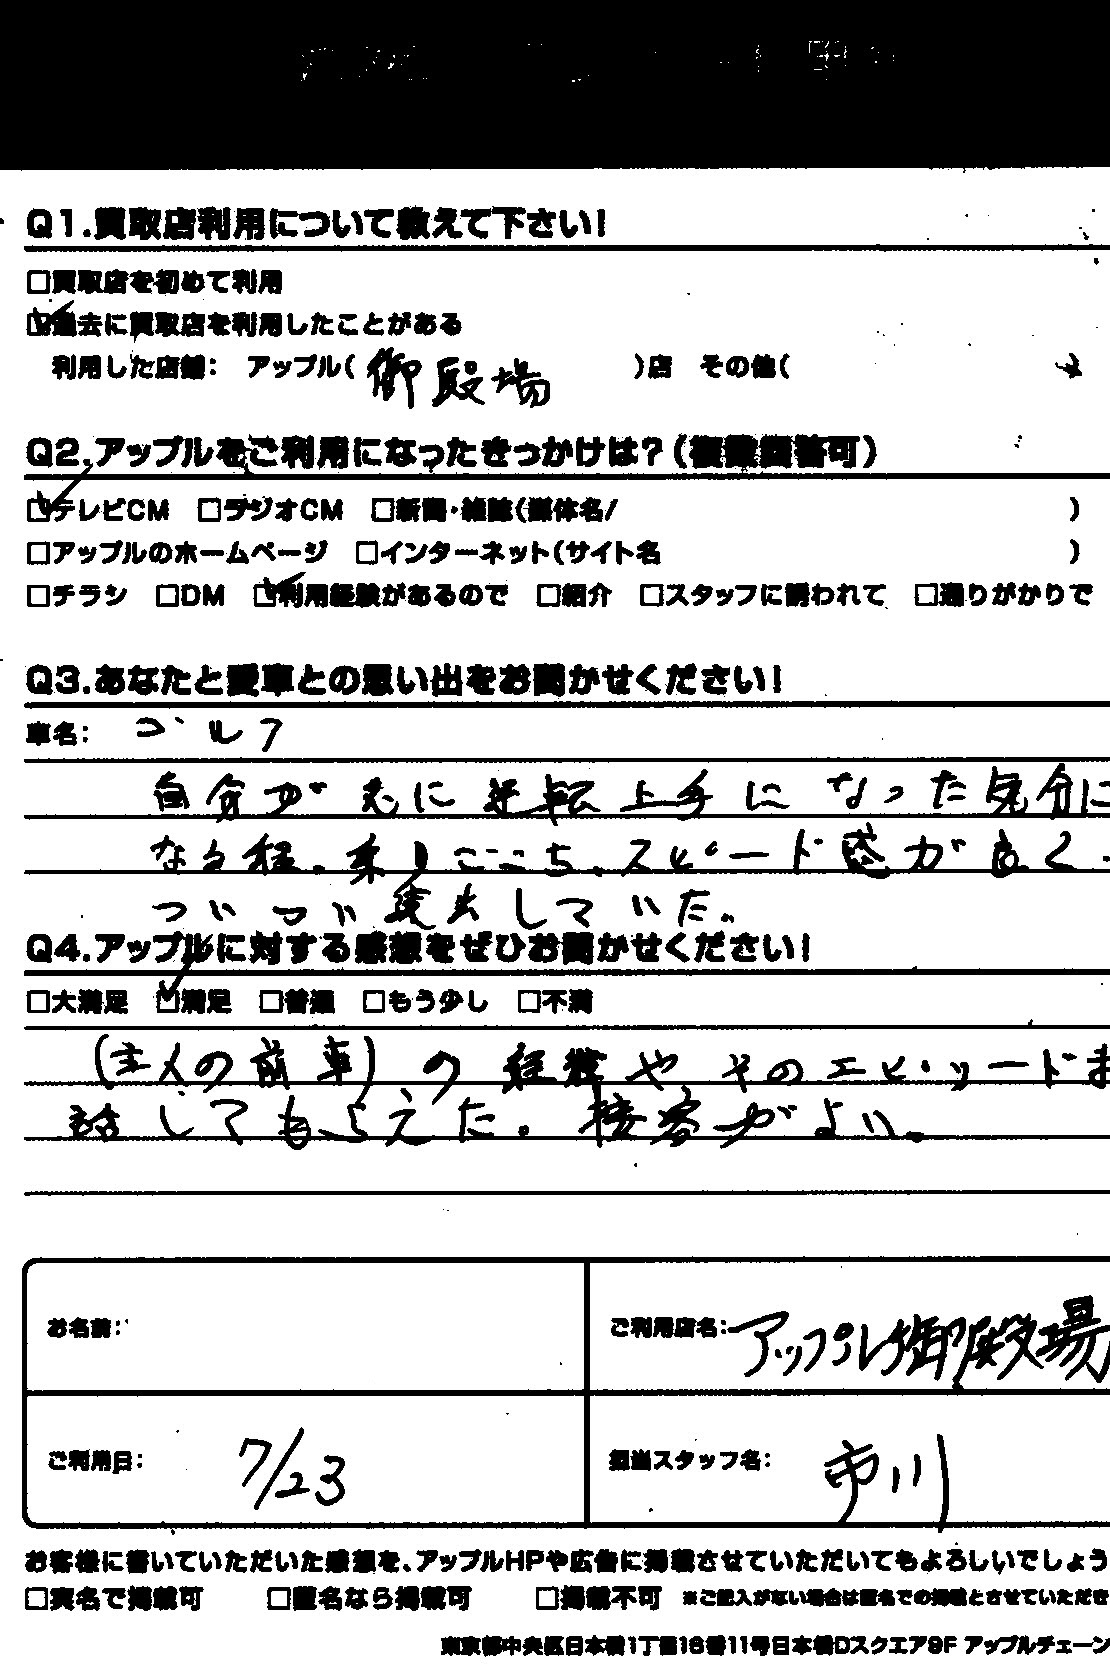 Q1.買取店利用について教えて下さい!
□買取店を初めて利用
☑過去に買取店を利用したことがある
利用した店舗: アップル(御殿場)店 その他(
Q2.アップルをご利用になったきっかけは?(複数回答可)
☑テレビCM □ラジオCM □新聞・雑誌(媒体名/ )
□アップルのホームページ □インターネット(サイト名 )
□チラシ □DM ☑利用経験があるので □紹介 □スタッフに誘われて □通りがかりで
Q3.あなたと愛車との思い出をお聞かせください!
車名: ゴルフ
自分が 急に 運転上手になった気分に
なる程、乗りここち、スピード感が良く、
ついつい遠出していた。
Q4.アップルに対する感想をぜひお聞かせください!
□大満足 ☑満足 □普通 □もう少し □不満
(主人の前車)の経験やそのエピソードま
話してもらえた。接客がよい。
お名前:
ご利用店名:アップル御殿場
ご利用日: 7/23
担当スタッフ名: 市川
お客様に書いていただいた感想を、アップルHPや広告に掲載させていただいてもよろしいでしょう
□実名で掲載可 □匿名なら掲載可 □掲載不可 ※ご記入がない場合は匿名での掲載とさせていただき
東京都中央区日本橋1丁目16番11号日本橋Dスクエア9F アップルチェーン